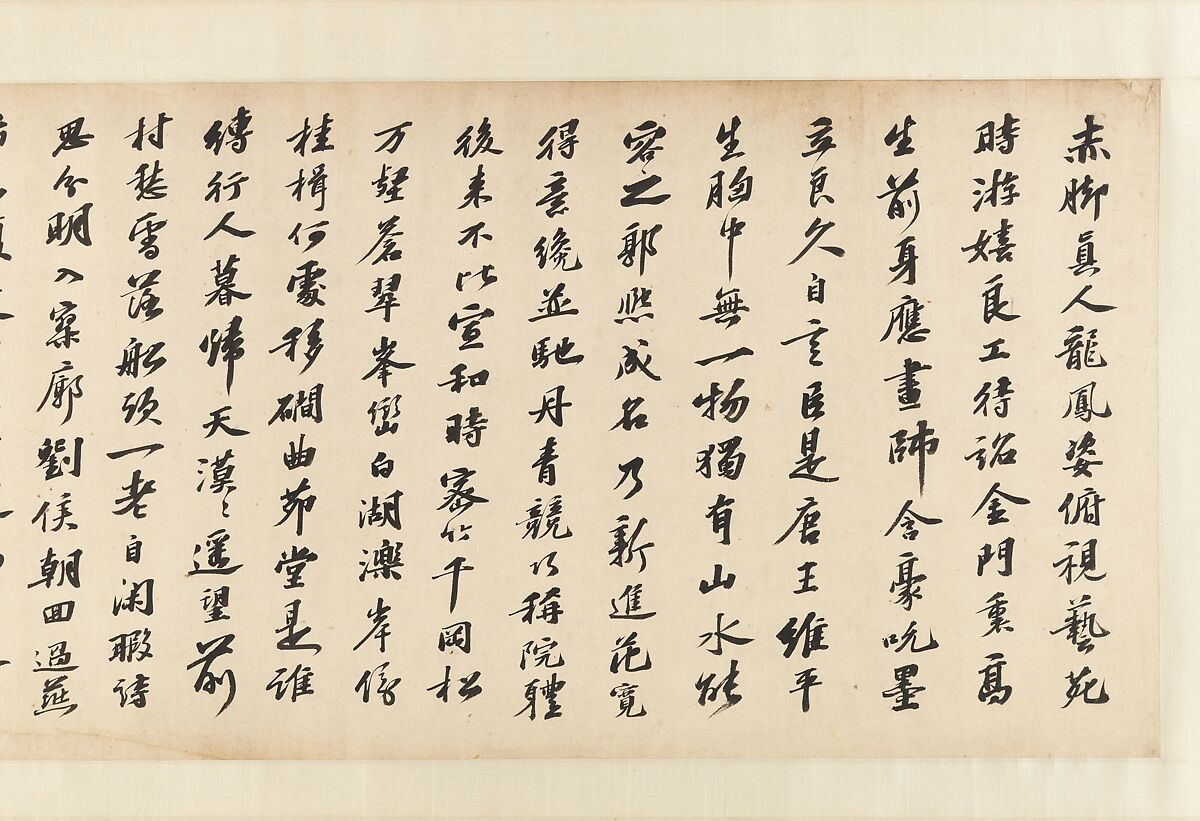 赤脚真人龍鳳姿俯視藝苑
時游嬉良工待詔金門裏高
生前身應畫師含豪吮墨
立良久自言臣是唐王維平
生胸中無一物獨有山水能
容之郭熙成名乃新進范寬
得意纔並馳丹青競巧稱院體
後來不比宣和時密竹千岡松
万壑蒼翠峯巒白湖濼岸傍
桂楫何處移磵曲茆堂是誰
縛行人暮歸天漠〻遥望前
村愁雪落船頭一老自閑暇詩
思分明入寥廓劉侯朝回過燕